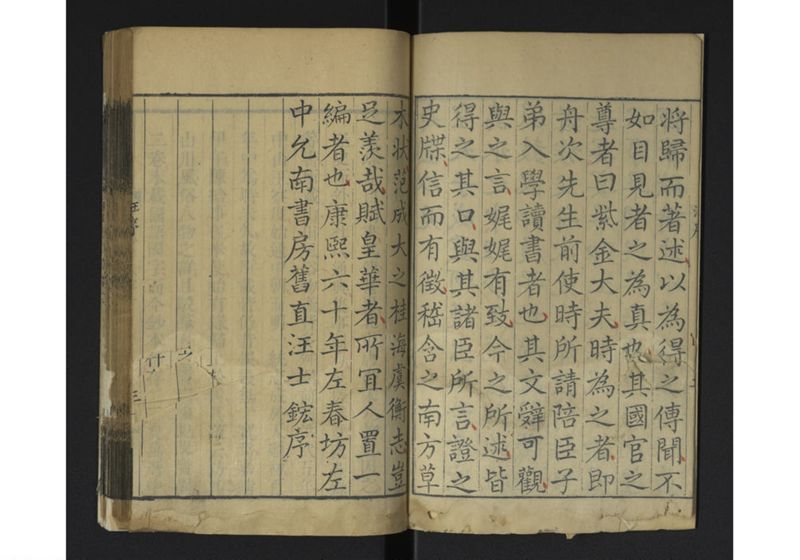 將歸而著述以為得之傳聞不
如目見者之為真也其國官之
尊者曰紫金大夫時為之者即
舟次先生前使時所請陪臣子
弟入學讀書者也其文辭可觀
與之言娓娓有致今之所述皆
得之其口與其諸臣所言證之
史牒信而有徵嵇含之南方草
木狀范成大之桂海虞衡志豈
足羨哉賦皇華者所宜人置一
編者也康熙六十年左春坊左
中允南書房舊直汪士鋐序